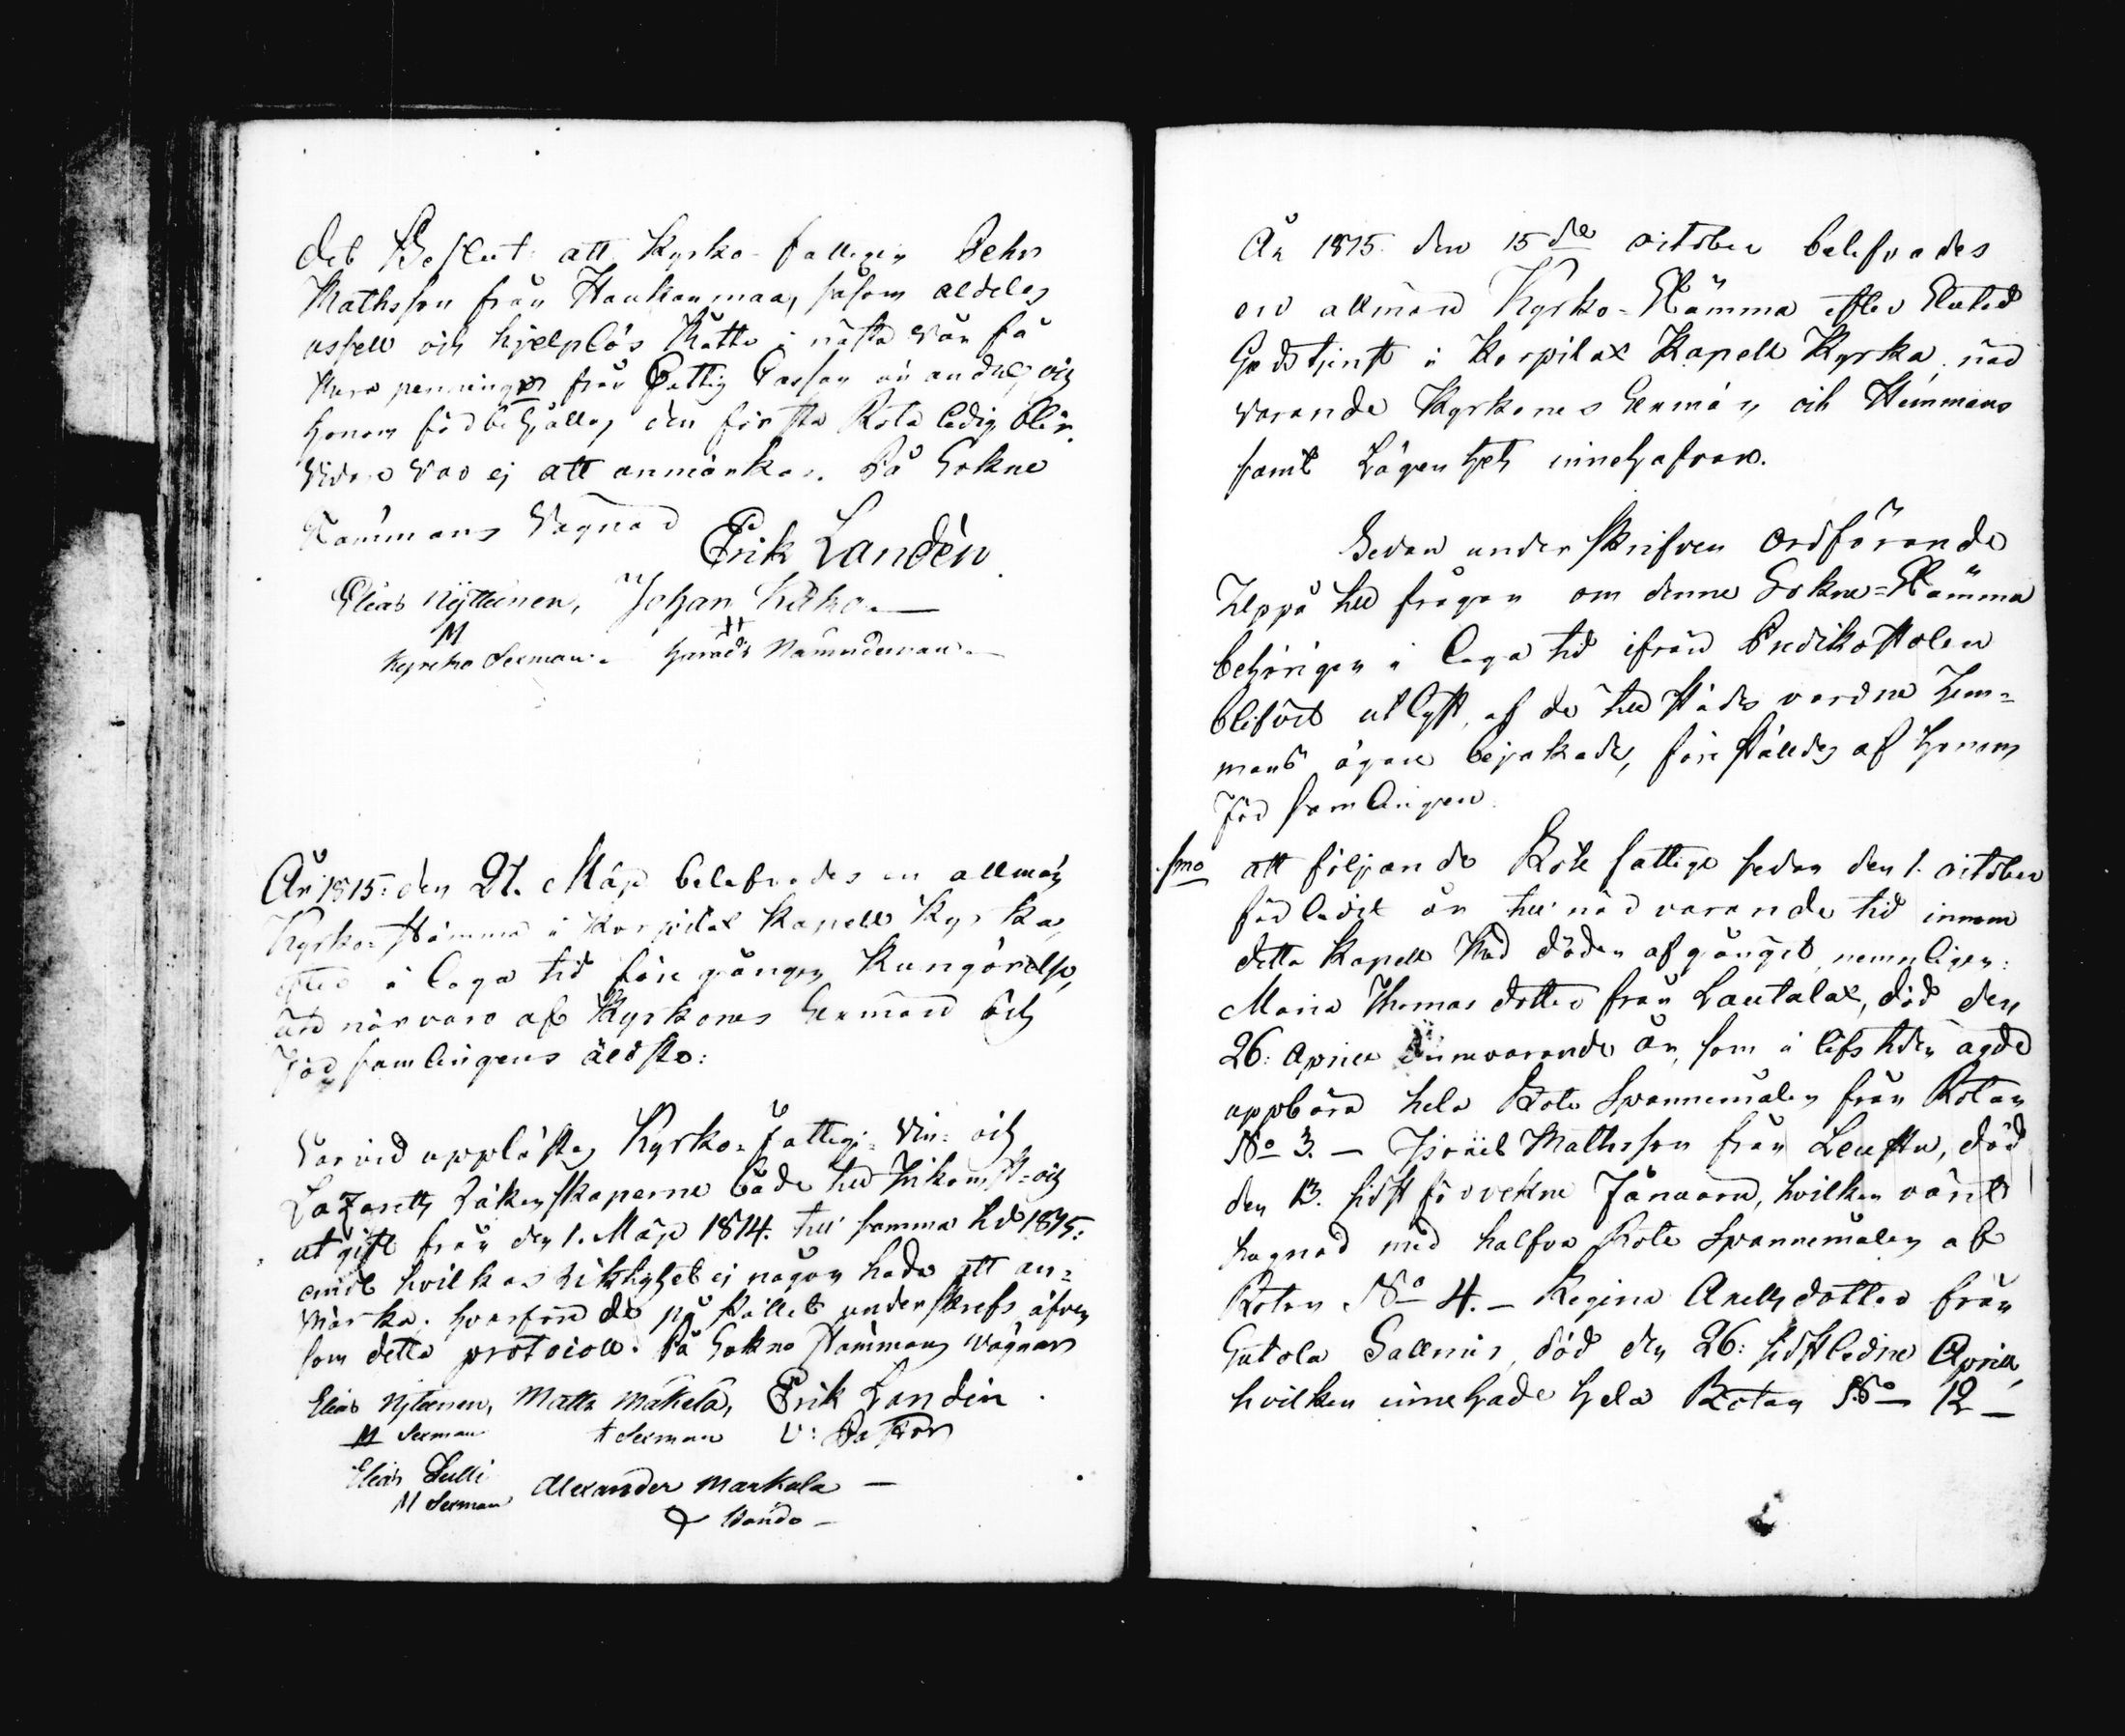 det Beslut: att Kyrko-fattigen Pehr
Mathsson från Haukanmaa, såsom aldeles
ussell och hjelplös skulle i nästa vår få
penningar från Fattig Cassan och
honom förbehålles den första Rota ledig blir.
Vidare var ej att anmärka. På Sokne
Stämmans Vägnar
Erik Landén
Elias Nyttinen, Johan
M
Kyrko Sexman. Härads Nämndeman.
År 1815: den 27. Mars belefvades en allmän
Kyrko-Stämma i Korpilax Kapell Kyrka,
efter i laga tid föregången Kungörelse,
närvaro af Kyrkones Sexmän och
Församlingens äldste:
Varvid upplästes Kyrko- Fattig- Vin- och
Lazaretts Räkenskaperne både till Inkomst- och
utgift från den 1. Mars 1814. till samma tid 1815:
emot hvilkas riktighet ej någon hade att an-
märka. hvarföre de på stället underskrefs äfven
som detta protocoll. På Sokne Stämmans vägnar
Elias Nytinen, Matts Mäkelä, Erik Landén
M Sexman † Sexman V: Pastor
Elias Lulli Alexander Markula
M Sexman Bonde
År 1815 den 15de October belefvades
en allmän Kyrko-Stämma efter slutad
Gudstjenst i Korpilax Kapell Kyrka, när
varande Kyrkones Sexmän och Hemmans
samt Lägenhets innehafvare.
Sedan underskrifven Ordförande
Uppå till frågan om denne Sokne-Stämma
behörigen i laga tid ifrån Predikostolen
blifvit utlyst, af de till städes vordne Hem-
mans ägare bejakades, föreställdes af honom
Församlingen
1mo att följande Rote fattige sedan den 1. October
förledit år till närvarande tid innom
detta Kapell med döden afgånget, nemnligen:
Maria Thomas dotter från Lautalax, död den
26: April innevarande år, som i lifstiden ägde
uppbära hela Rote Spannemålen från Rotan
No 3. — Israel Mathsson från Leustu, död
den 13. sidst förvekne Januarii, hvilken varit
hugnad med halfva Rote Spannemålen af
Rotan No 4. — Regina Axelsdotter från
Sutola Sallmis, död den 26: sidstledne April,
hvilken innehade hela Rotan No 12 —